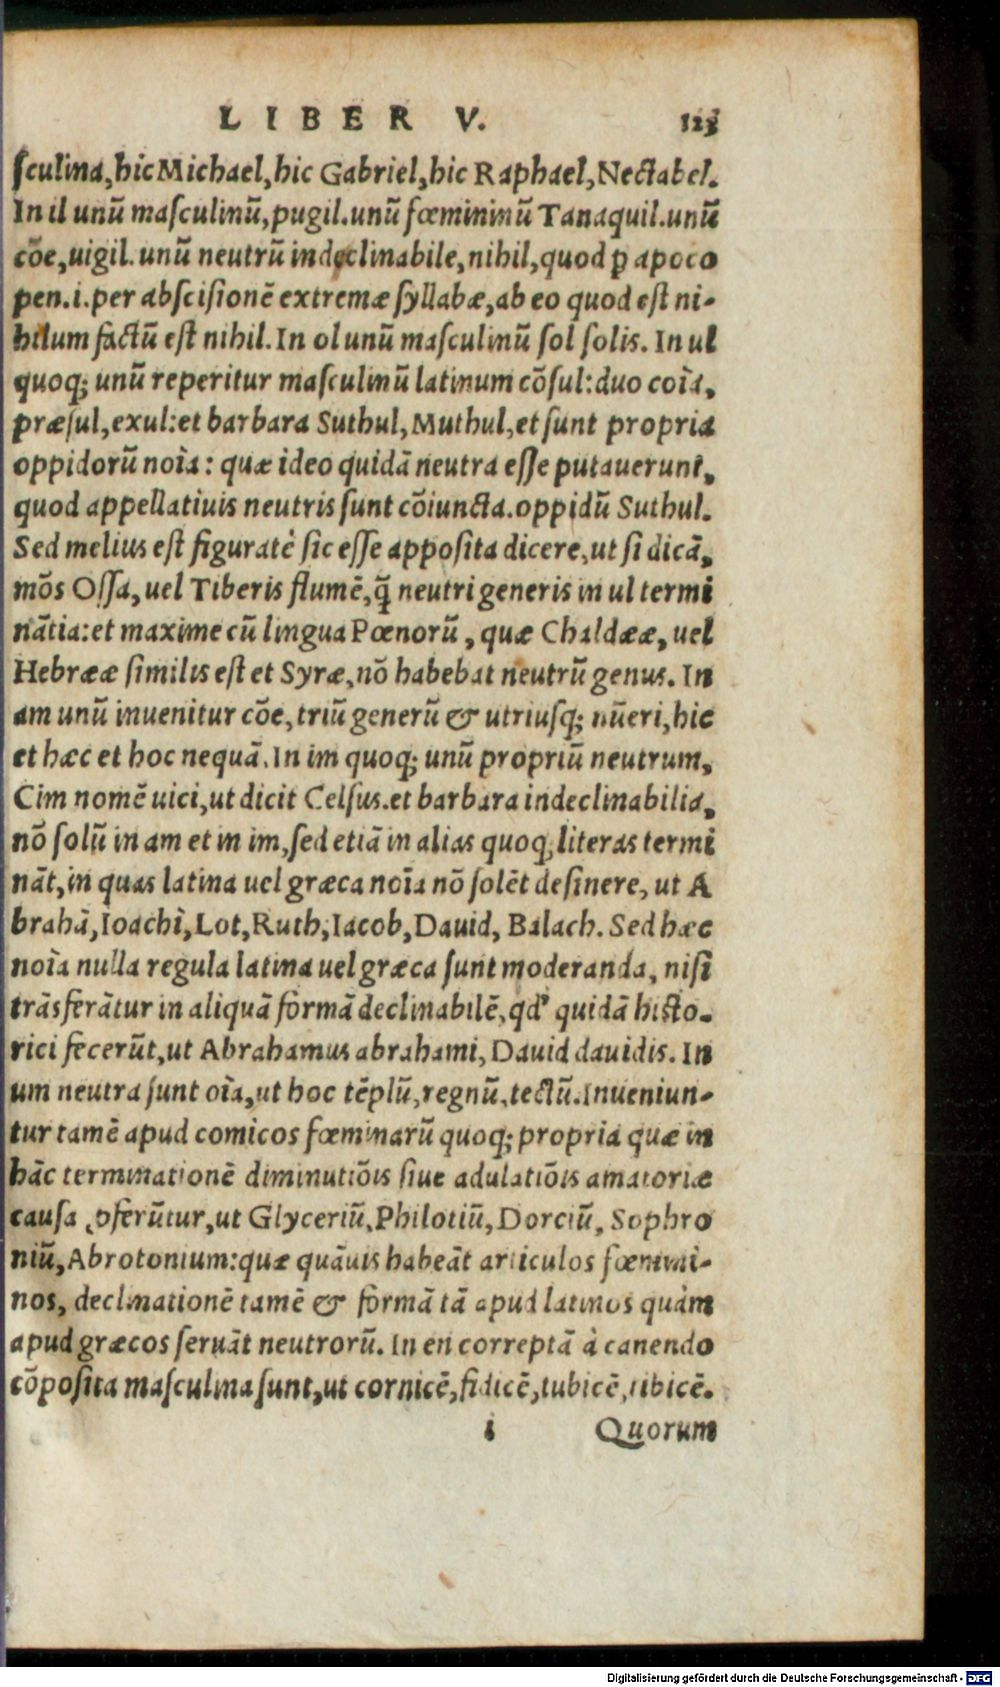 LIBER V. 113
ſculina, hic Michael, hic Gabriel, hic Raphael, Nectabel.
In il unū maſculinū, pugil. unū fœmininū Tanaquil. unū
cōe, uigil. unū neutrū indeclinabile, nihil, quod ꝑ apoco
pen. i. per abſciſionē extremæ ſyllabæ, ab eo quod eſt ni-
hilum factū eſt nihil. In ol unū maſculinū ſol ſolis. In ul
quoq; unū reperitur maſculinū latinum cōſul: duo coīa,
præſul, exul: et barbara Suthul, Muthul, et ſunt propria
oppidorū noīa: quæ ideo quidā neutra eſſe putauerunt,
quod appellatiuis neutris ſunt cōiuncta. oppidū Suthul.
Sed melius eſt figuratè ſic eſſe appoſita dicere, ut ſi dicā,
mōs Oſſa, uel Tiberis flumē, q̄ neutri generis in ul termi
nātia: et maxime cū lingua Pœnorū, quæ Chaldææ, uel
Hebrææ ſimilis eſt et Syræ, nō habebat neutrū genus. In
am unū inuenitur cōe, triū generū & utriuſq; nūeri, hic
et hæc et hoc nequā. In im quoq; unū propriū neutrum,
Cim nomē uici, ut dicit Celſus. et barbara indeclinabilia,
nō ſolū in am et in im, ſed etiā in alias quoq; literas termi
nāt, in quas latina uel græca noīa nō ſolēt deſinere, ut A
brahā, Ioachī, Lot, Ruth, Iacob, Dauid, Balach. Sed hæc
noīa nulla regula latina uel græca ſunt moderanda, niſi
trāsferātur in aliquā formā declinabilē, qd' quidā hiſto-
rici fecerūt, ut Abrahamus abrahami, Dauid dauidis. In
um neutra ſunt oīa, ut hoc tēplū, regnū, tectū. Inueniun-
tur tamē apud comicos fœminarū quoq; propria quæ in
hāc terminationē diminutiōis ſiue adulatiōis amatoriæ
cauſa ꝓferūtur, ut Glyceriū, Philotiū, Dorciū, Sophro
niū, Abrotonium: quæ quāuis habeāt articulos fœmini-
nos, declinationē tamē & formā tā apud latinos quàm
apud græcos ſeruāt neutrorū. In en correptā à canendo
cōpoſita maſculina ſunt, ut cornicē, fidicē, tubicē, tibicē.
i Quorum
Digitalisierung gefördert durch die Deutsche Forschungsgemeinschaft - DFG